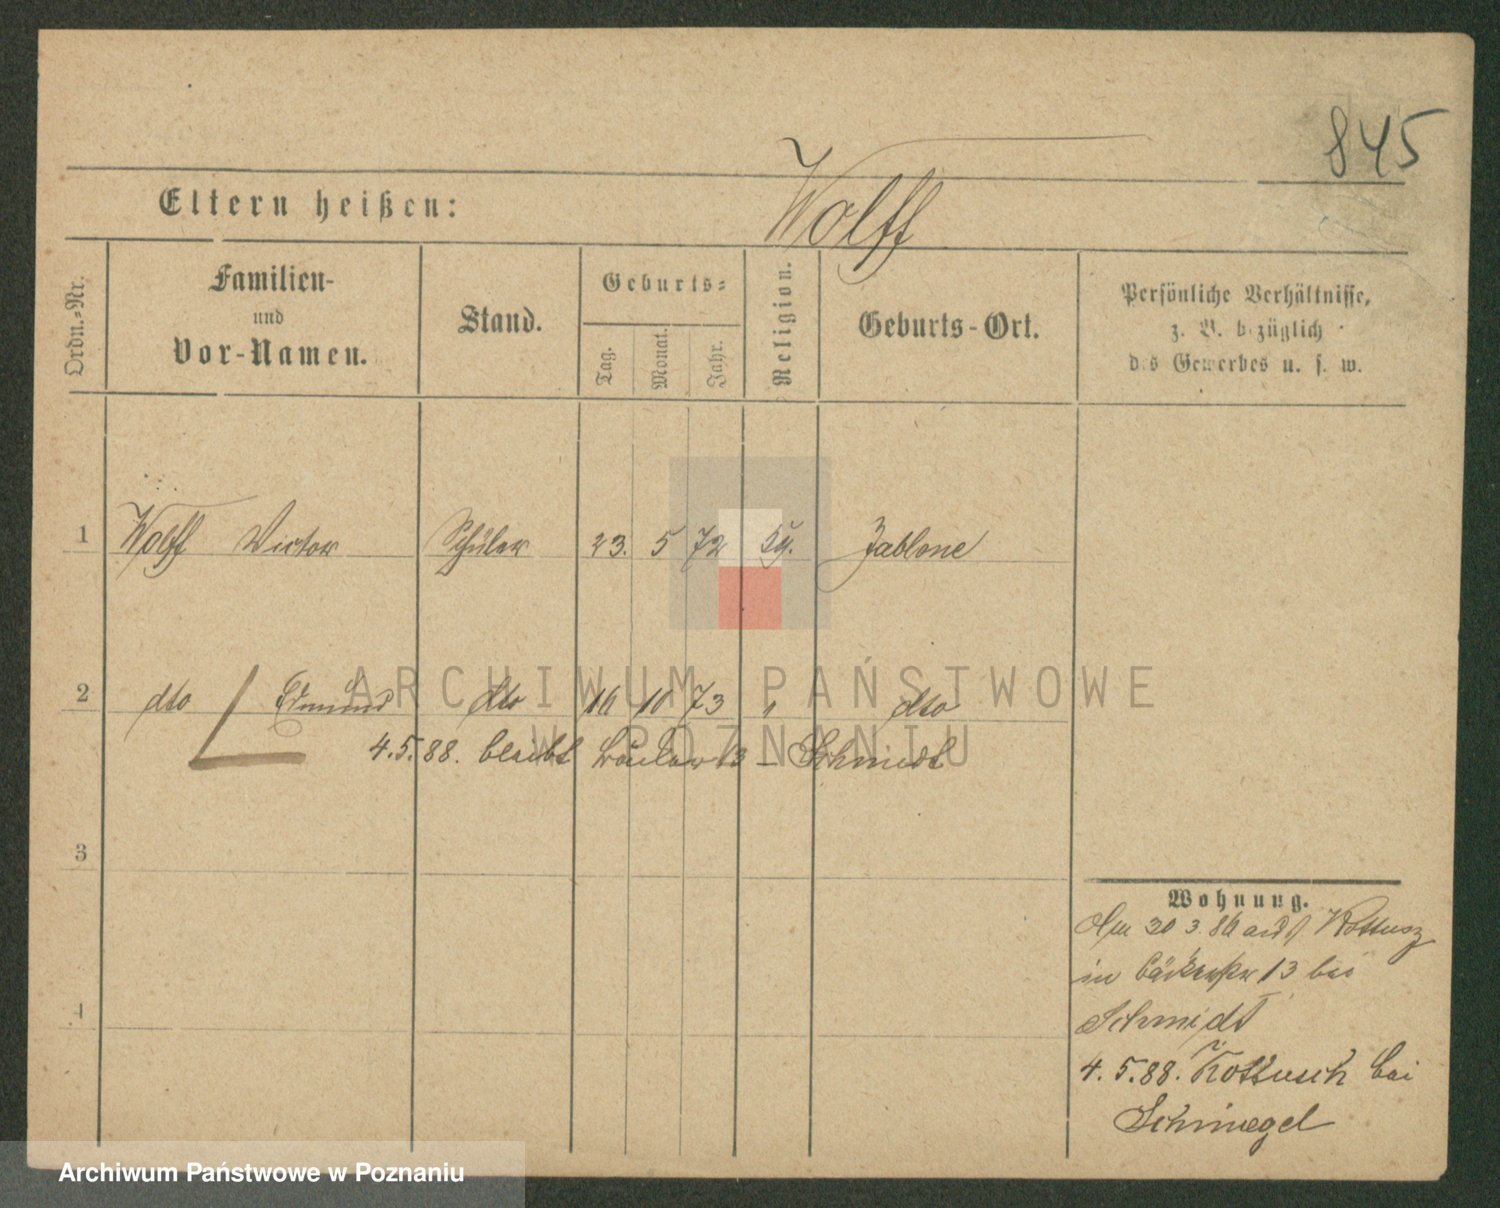 845
Eltern heißen: Wolff
Ordn.-Nr.
Familien-
und
Vor-Namen.
Stand.
Geburts-
Tag. Monat. Jahr.
Religion.
Geburts-Ort.
Persönliche Verhältnisse,
z. B. bezüglich
des Gewerbes u. s. w.
1 Wolff Victor Schüler 23. 5 72 Jablone
2 dto Edmund dto 16 10 73 " dto
4.5.88. bleibt 13 – Schmidt
3
4
Wohnung.
Am 30 3. 86 Kottusz
in 13 bei
Schmidt
4. 5.88. Kottusch bei
Schmiegel
ARCHIWUM PAŃSTWOWE
W POZNANIU
Archiwum Państwowe w Poznaniu